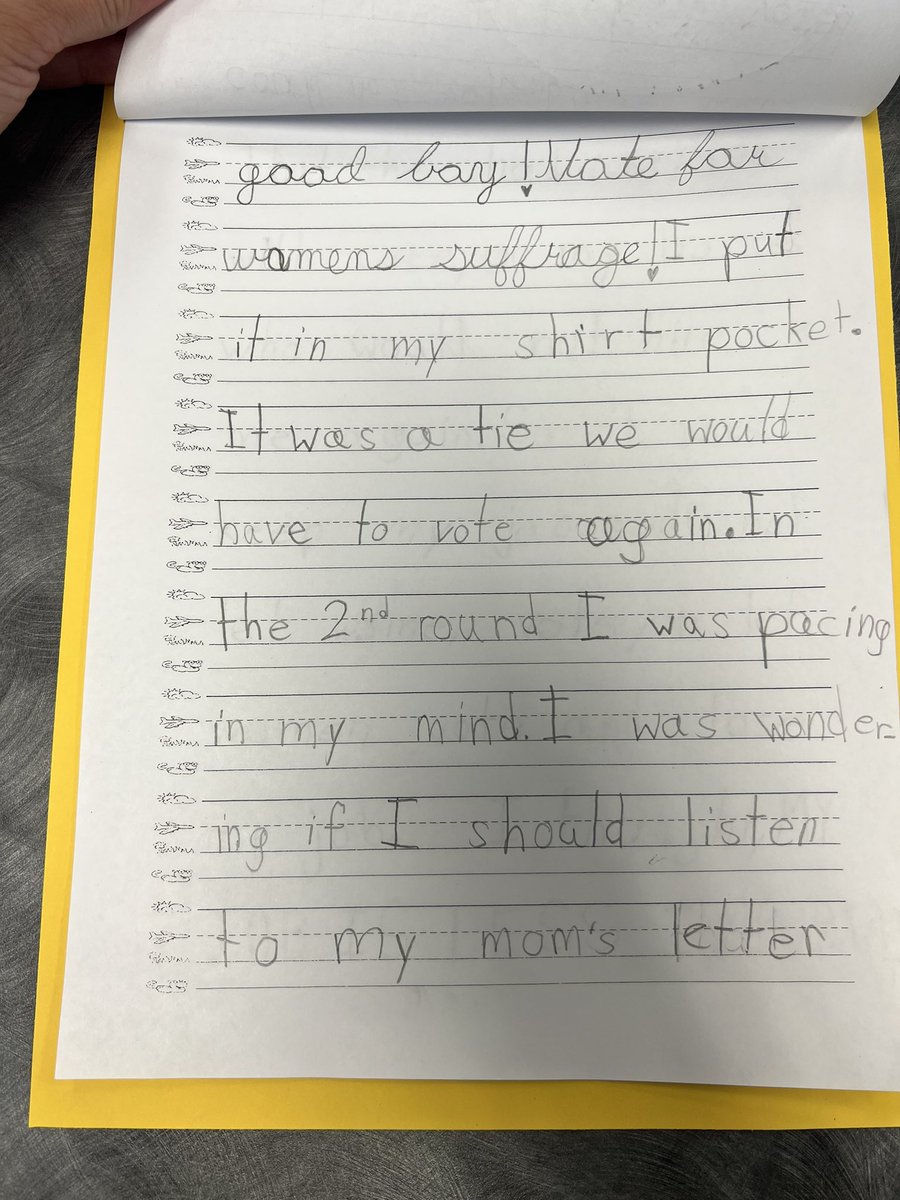 good boy! Vote for
womens suffrage! I put
it in my shirt pocket.
It was a tie we would
have to vote again. In
the 2nd round I was pacing
in my mind. I was wonder-
ing if I should listen
to my mom's letter